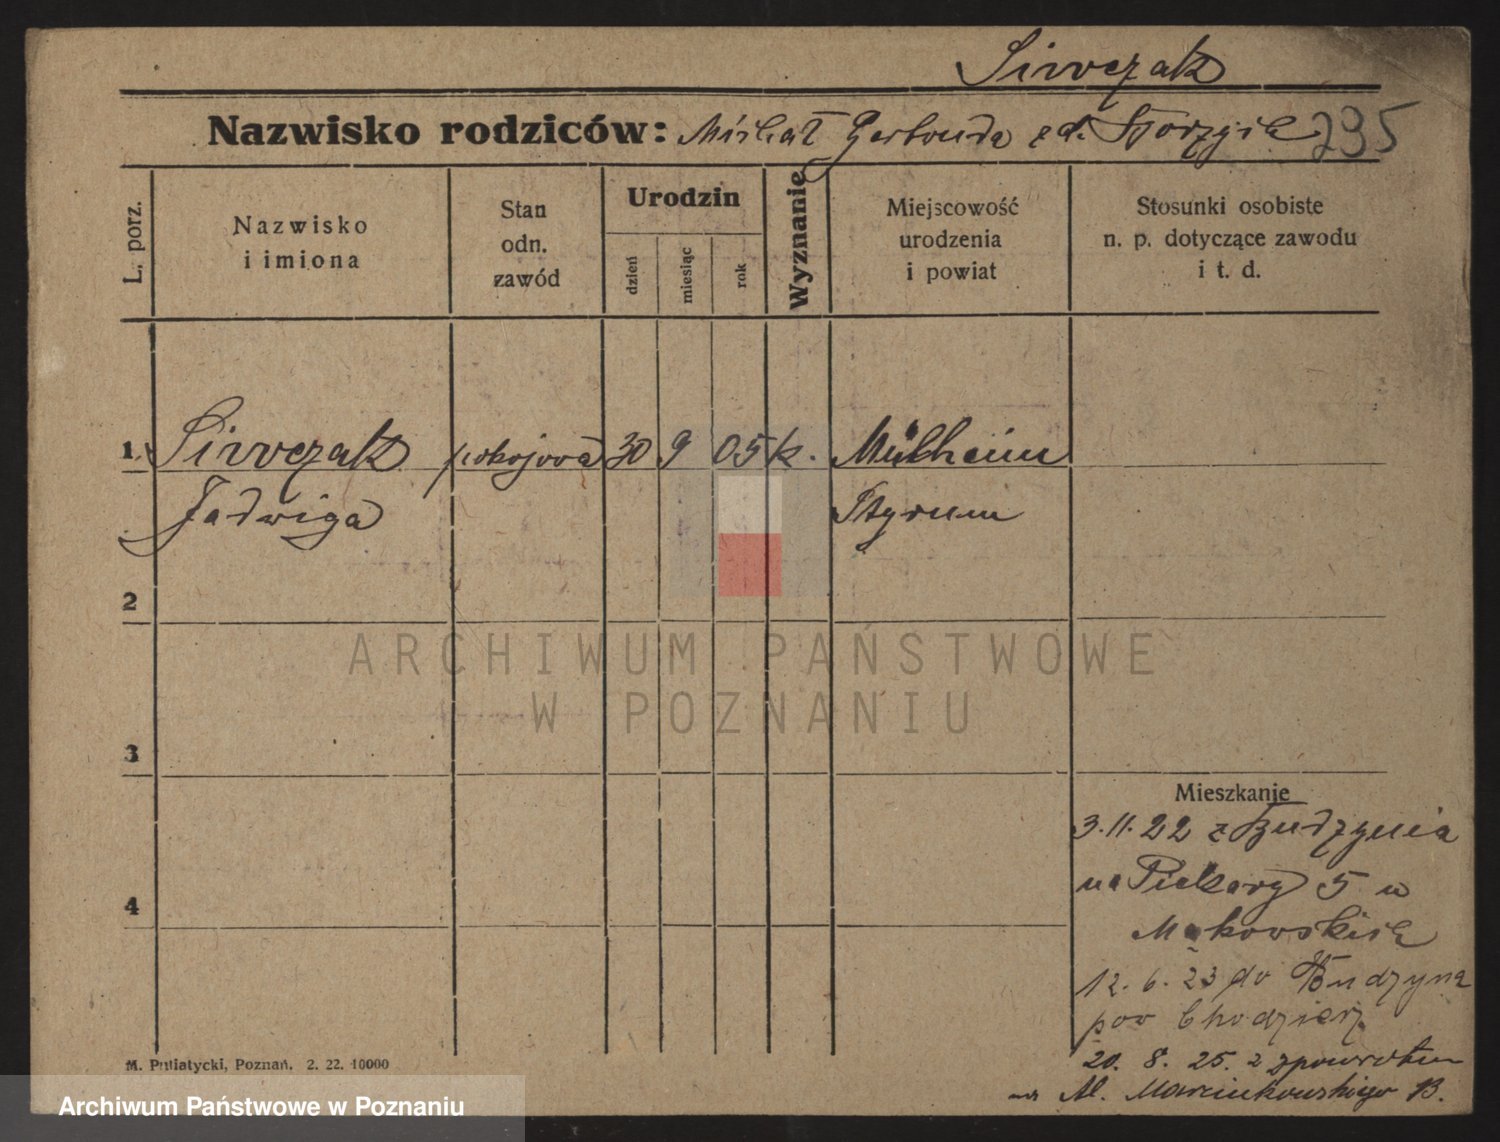 Siwczak
Nazwisko rodziców: Michał Gertruda z d. 295
L. porz.
Nazwisko
i imiona
Stan
odn.
zawód
Urodzin
dzień
miesiąc
rok
Wyznanie
Miejscowość
urodzenia
i powiat
Stosunki osobiste
n. p. dotyczące zawodu
i t. d.
1. Siwczak pokojowa 30 9 05 k. Mülheim
Jadwiga Styrum
2
3
Mieszkanie
3.11.22 z Budzynia
na Piekary 5 u
4
Makowskich
12.6.23 do Budzyna
pow Chodzież
20.8.25. z zpowrotem
na Al. Marcinkowskiego 13.
M. Putiatycki, Poznań. 2. 22. 10000
ARCHIWUM PAŃSTWOWE
W POZNANIU
Archiwum Państwowe w Poznaniu